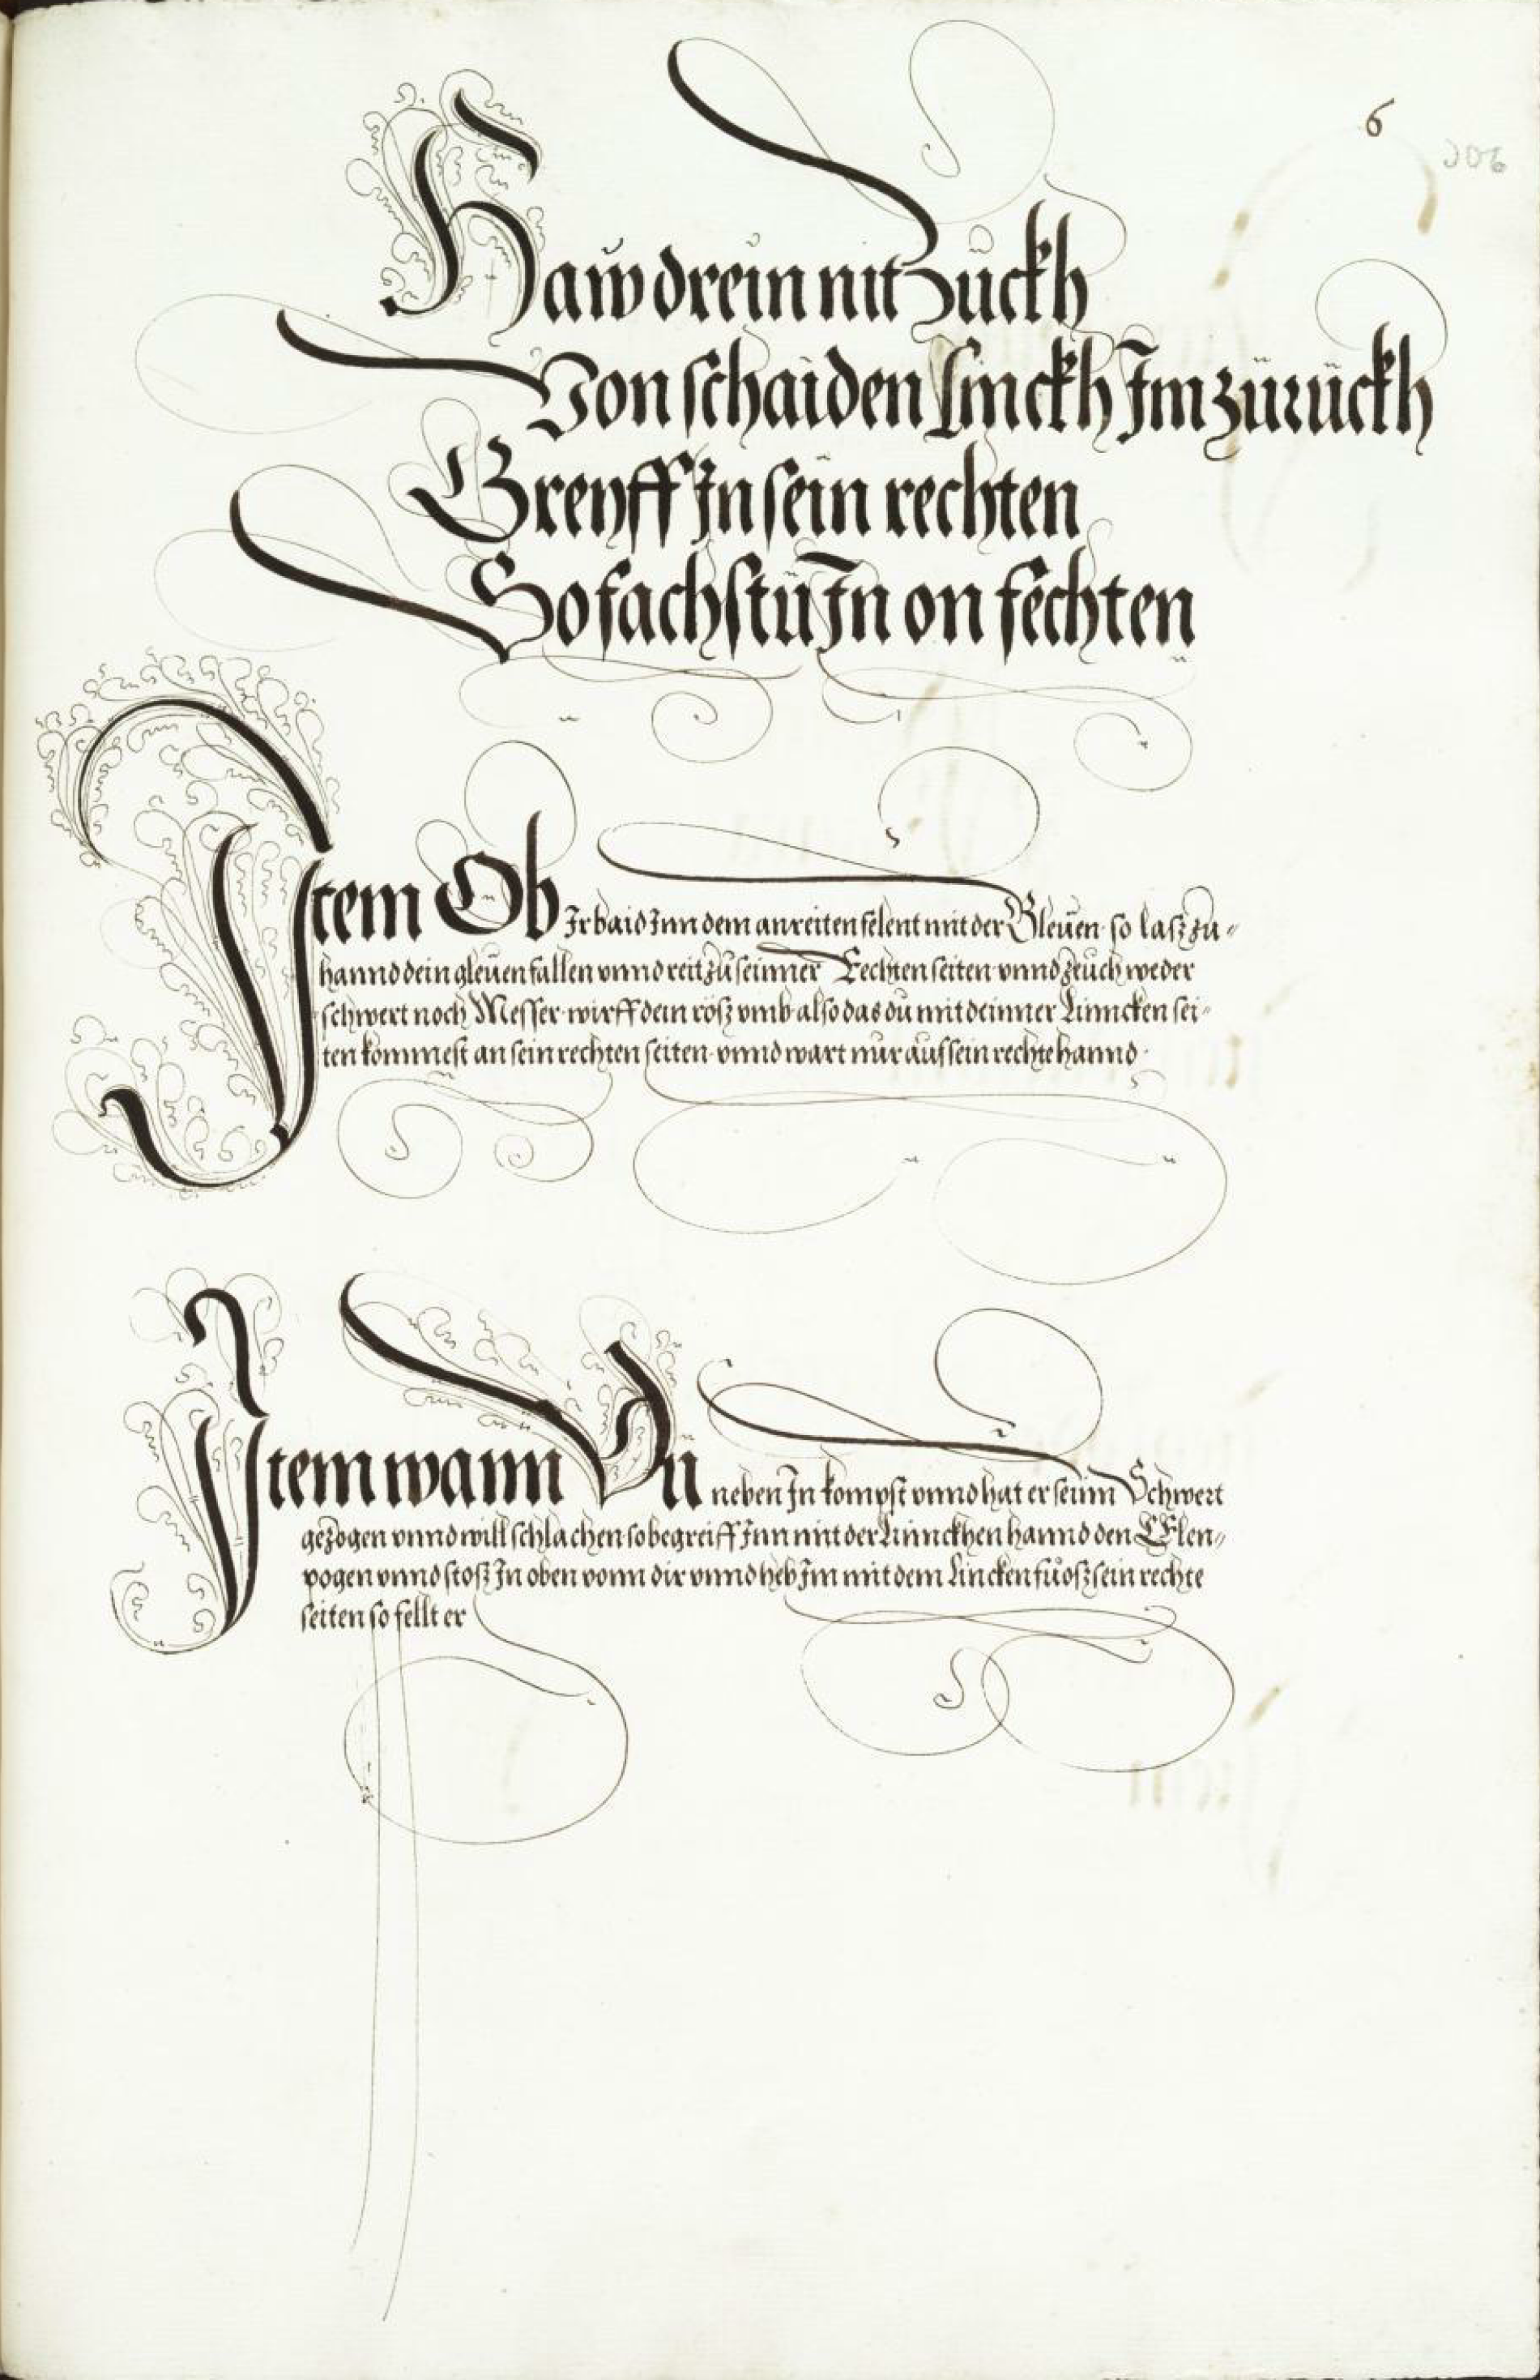 6
306
Haw drein nit Zuckh
Von schaiden Linckh Im zuruckh
Greyff In sein rechten
So fachstu In on fechten
Item Ob Ir baid Inn dem anreiten felent mit der Gleuen so lasz zu=
hannd dein gleuen fallen vnnd reit zu seinner Rechten seiten vnnd zeuch weder
schwert noch Messer wirff dein rosz vmb also das du mit deinner Linncken sei=
ten kommest an sein rechten seiten vnnd wart nur auf sein rechte hannd
Item wann Du neben In kompst vnnd hat er seinn Schwert
gezogen vnnd will schlachen so begreiff Inn mit der Linnckhen hannd den Elen=
pogen vnnd stosz In oben vonn dir vnnd heb Im mit dem Lincken fuosz sein rechte
seiten so fellt er